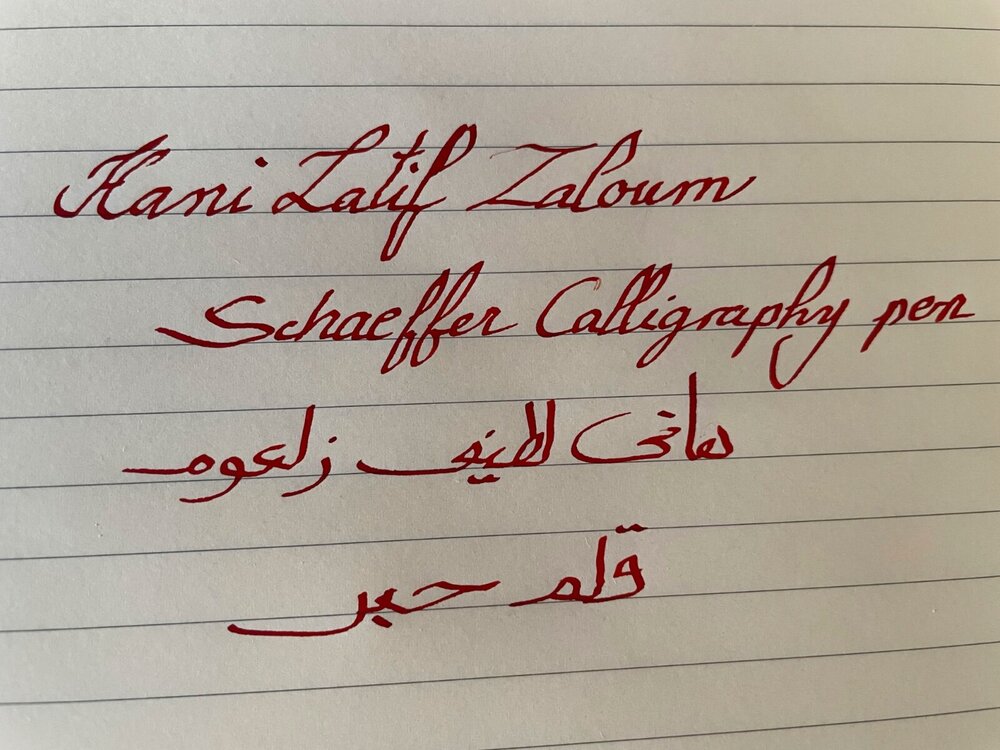 Hani Latif Zaloum
Schaeffer Calligraphy pen
هاني لطيف زلعوم
قلم حبر